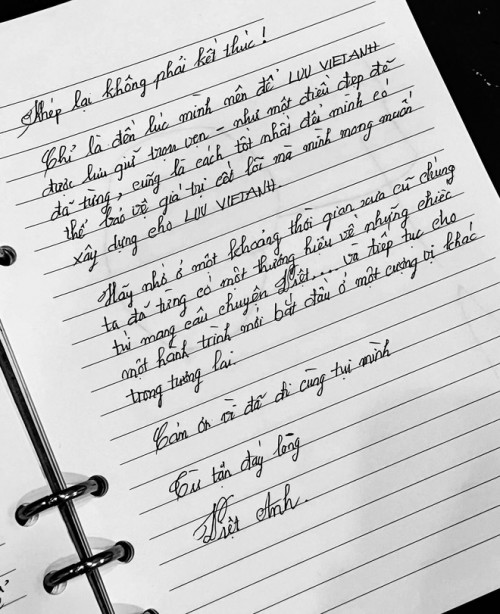 Khép lại không phải kết thúc!
Chỉ là đến lúc mình nên để LUU VIETANH
được lưu giữ trọn vẹn - như một điều đẹp đẽ
đã từng, cũng là cách tốt nhất để mình có
thể trao về giá trị cốt lõi mà mình mong muốn
xây dựng cho LUU VIETANH.
Hãy nhớ ở một khoảng thời gian xưa cũ chúng
ta đã từng có một thương hiệu về những chiếc
túi mang câu chuyện Việt.... và tiếp tục cho
một hành trình mới bắt đầu ở một cương vị khác
trong tương lai.
Cảm ơn vì đã đi cùng tụi mình
Từ tận đáy lòng
Việt Anh.